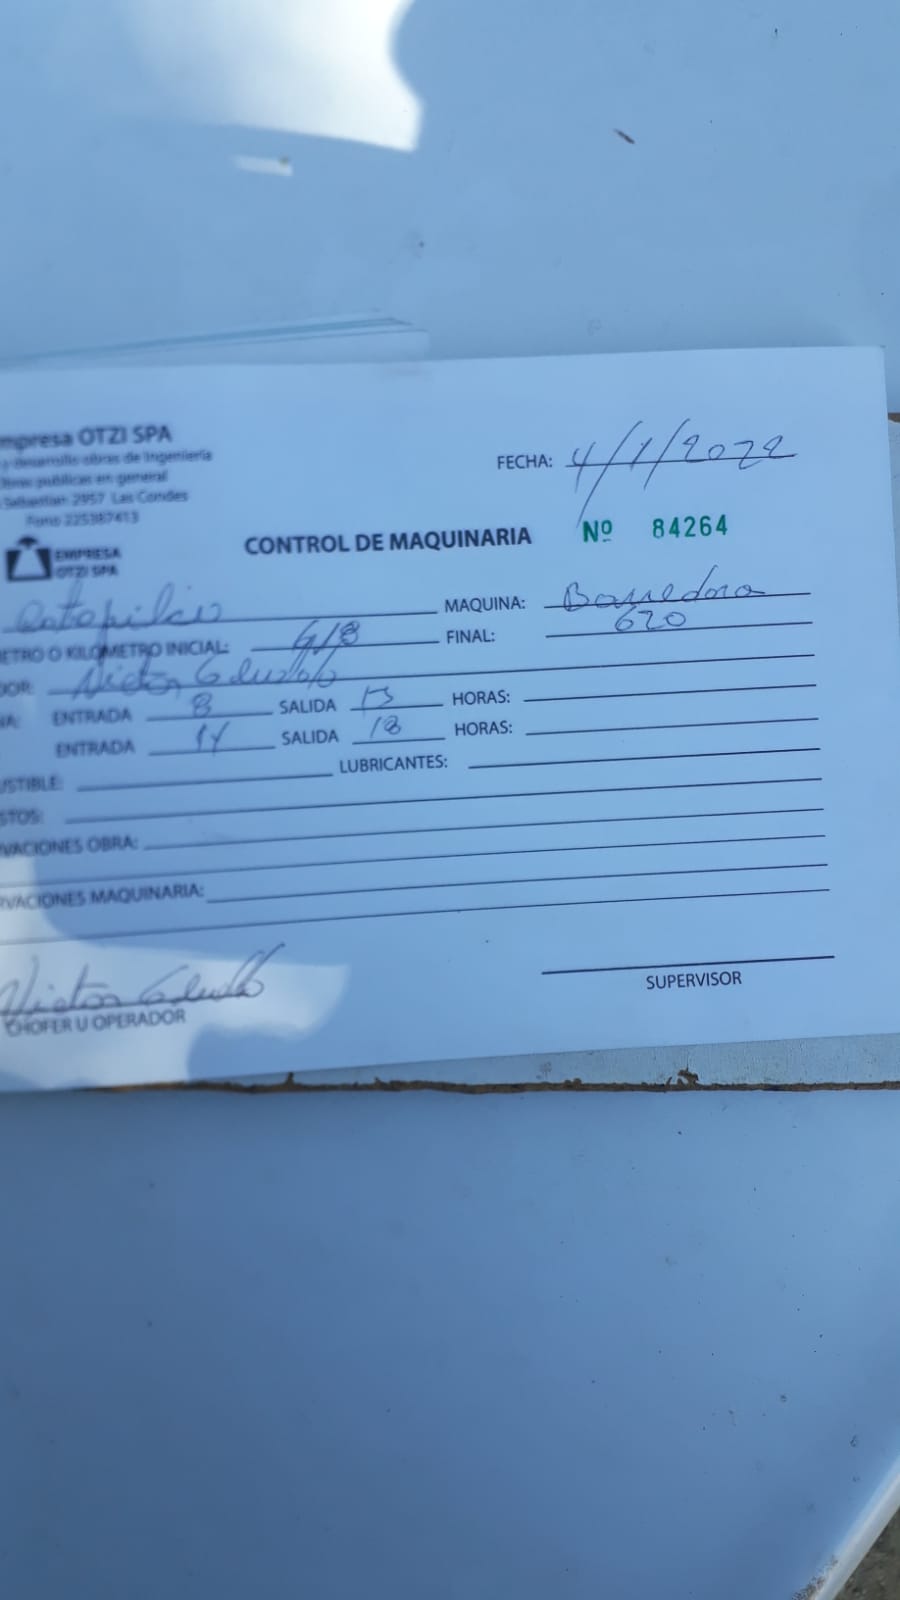 mpresa OTZI SPA
y desarrollo obras de Ingeniería
bras publicas en general
Sebastian 2957 Las Condes
Fono 225387413
FECHA: 4/1/2022
EMPRESA
OTZI SPA
CONTROL DE MAQUINARIA Nº 84264
MAQUINA: Barredora
ETRO O KILOMETRO INICIAL: 618 FINAL: 620
DOR: Victor
NA: ENTRADA 8 SALIDA 13 HORAS:
ENTRADA 14 SALIDA 18 HORAS:
USTIBLE: LUBRICANTES:
STOS:
VACIONES OBRA:
RVACIONES MAQUINARIA:
Victor
CHOFER U OPERADOR
SUPERVISOR